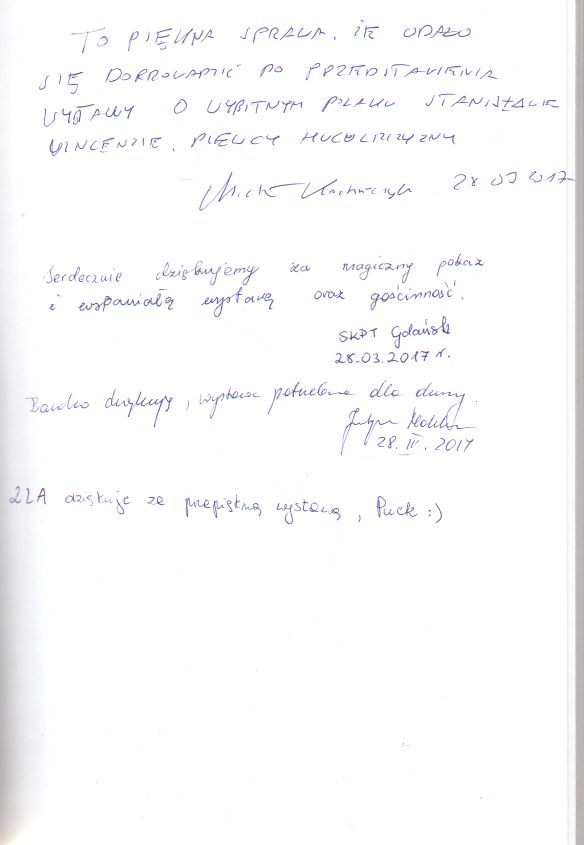 TO PIĘKNA SPRAWA, ŻE UDAŁO
SIĘ DOPROWADZIĆ DO PRZEDSTAWIENIA
WYSTAWY O WYBITNYM POLAKU STANISŁAWIE
VINCENZIE, PIEWCY HUCULSZCZYZNY
28 03 2017
Serdecznie dziękujemy za magiczny pokaz
i wspaniałą wystawę oraz gościnność.
SKPT Gdańsk
28.03.2017 r.
Bardzo dziękuję, wystawa potrzebna dla duszy.
28. III. 2017
2LA dziękuje za przepiękną wystawę, Puck :)